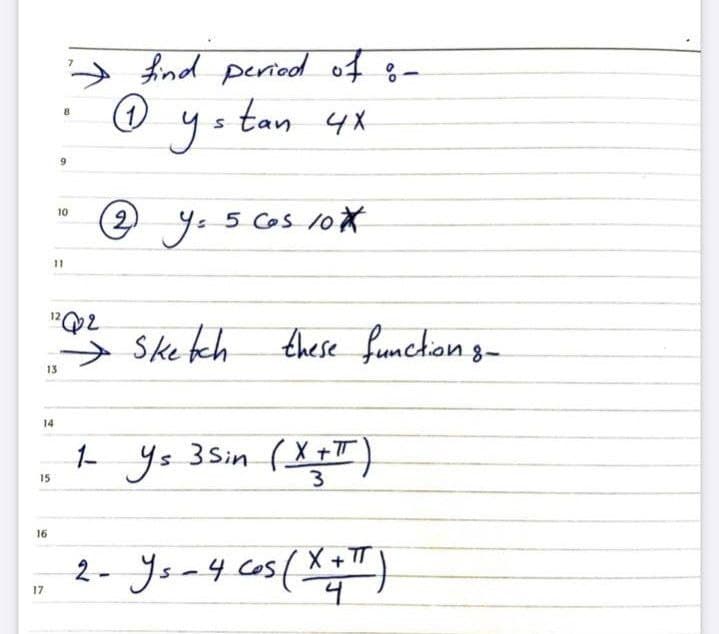 7 → find period of :-
8 ① y = tan 4x
9
10 ② y = 5 cos 10x
11
12 Q2
13 → sketch these function :-
14
15 1- y = 3 sin (x + π / 3)
16
17 2- y = -4 cos (x + π / 4)